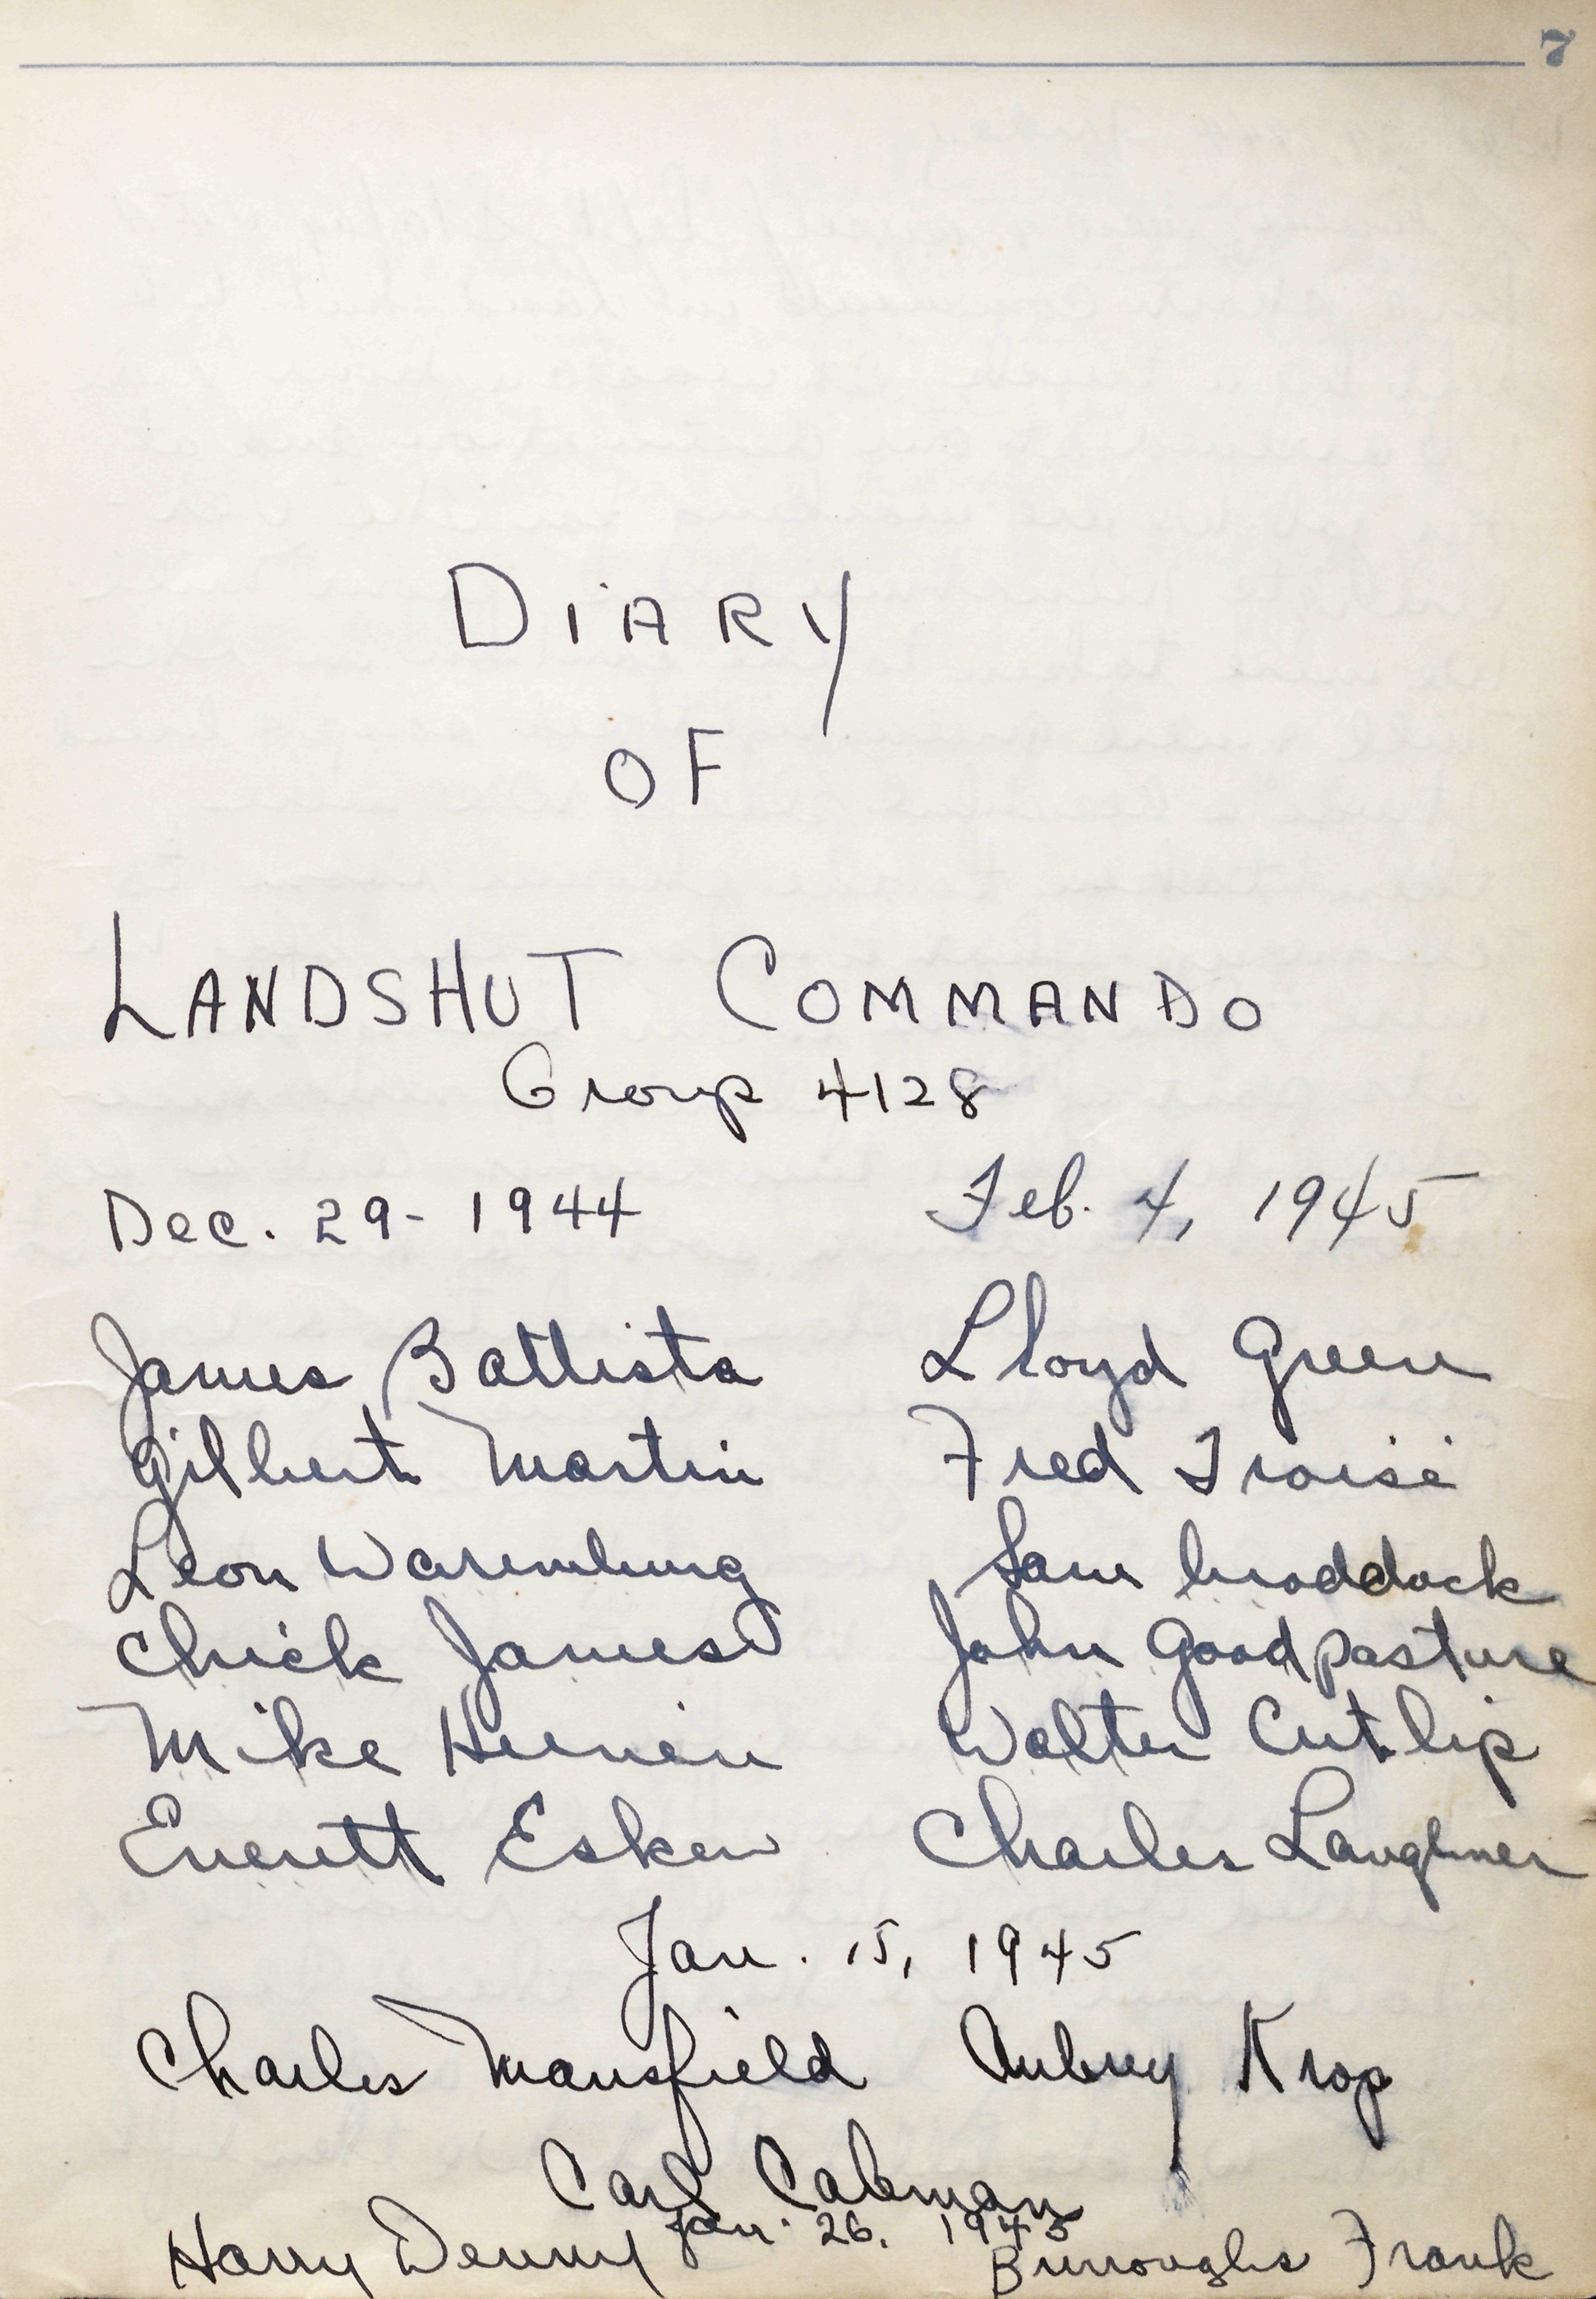 7
DiARY
OF
LANDSHUT COMMANDO
Group 4128
Dec. 29- 1944 Feb. 4, 1945
James Battista Lloyd Green
Gilbert Martin Fred Troisi
Leon Waremburg Sam
Chick James John Goodpasture
Mike Walter Cutlip
Everett Eskew Charles Laughner
Jan. 15, 1945
Charles Mansfield Aubrey Krop
Carl
Jan. 26, 1945
Harry Denny Burroughs Frank